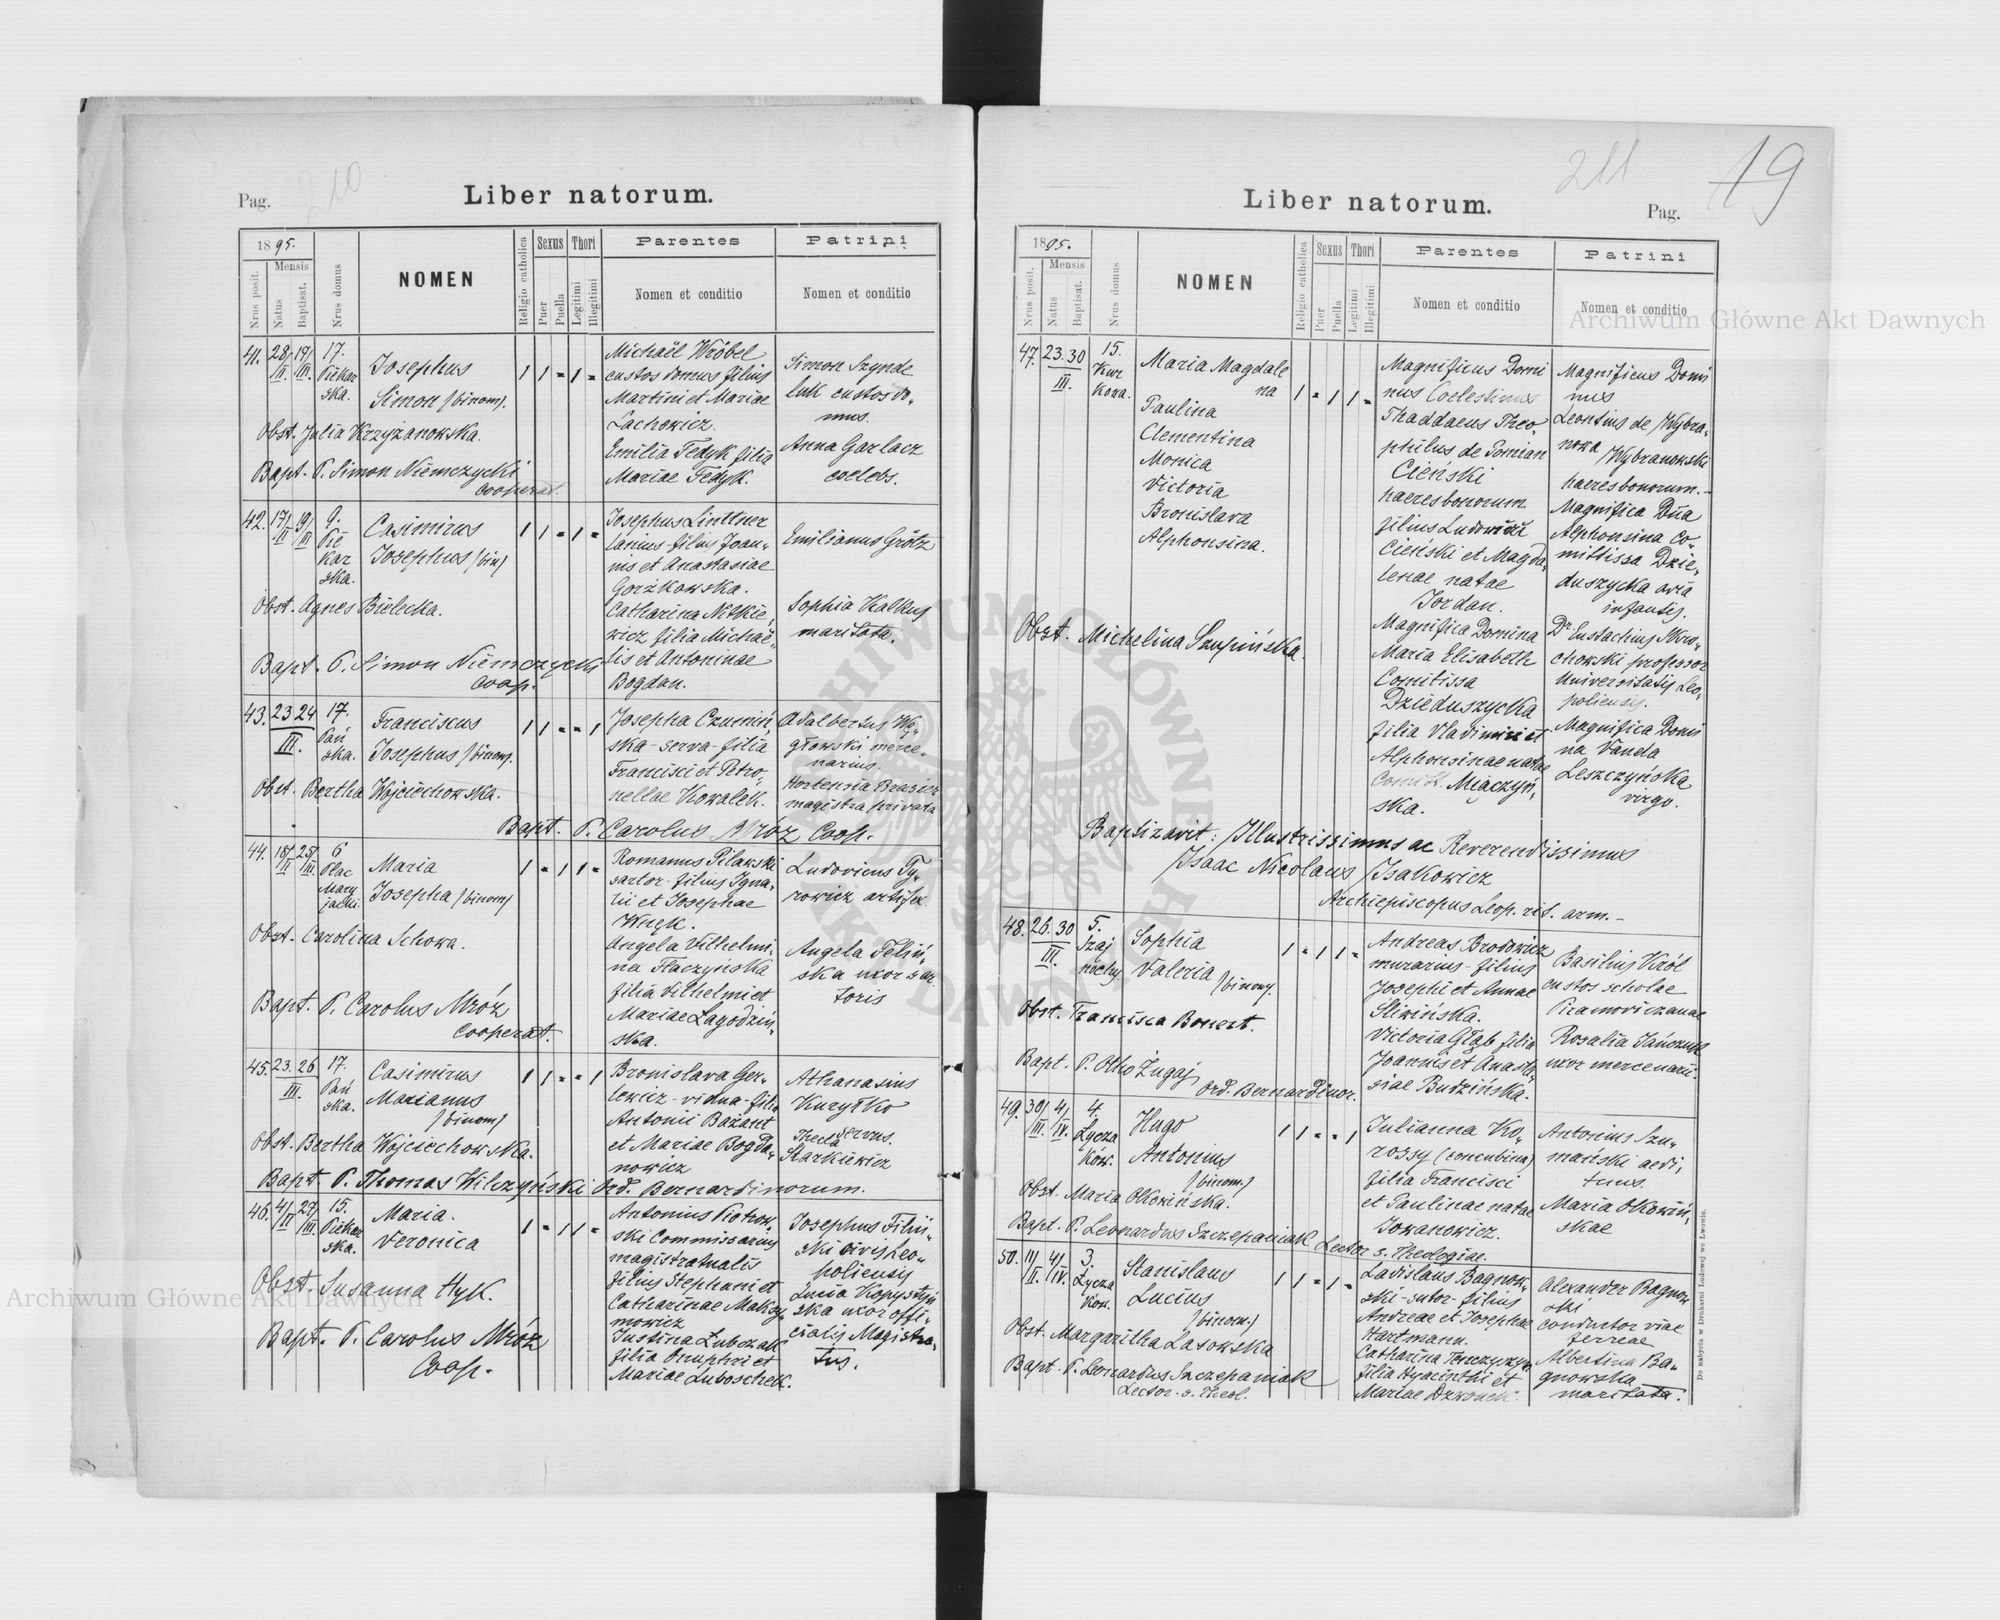 Pag. 210
Liber natorum.
1895.
Nrus posit.
Mensis
Natus
Baptisat.
Nrus domus
NOMEN
Religio catholica
Sexus
Puer
Puella
Thori
Legitimi
Illegitimi
Parentes
Nomen et conditio
Patrini
Nomen et conditio
41. 28/II. 19/III.
17.
Piekar
ska.
Josephus
Simon /binom/.
Obst. Julia Krzyżanowska.
Bapt. P. Simon Niemczycki
cooperat.
Michaël Wróbel
custos domus filius
Martini et Mariae
Lachowicz.
Emilia Fedyk filia
Mariae Fedyk.
Simon Szynde
luk custos do-
mus.
Anna Garlacz
coelebs.
42. 17/II 19/III
9.
Pie
kar
ska.
Casimirus
Josephus /bin/
Obst. Agnes Bielecka.
Bapt. P. Simon Niemczycki
Coop.
Josephus Linttner
lanius - filius Joan-
nis et Anastasiae
Gorżkowska.
Catharina Nitkie-
wicz filia Michaë-
lis et Antoninae
Bogdan.
Emilianus Grötz
Sophia Kalkus
maritata.
43. 23 24
III.
17.
Pań
ska.
Franciscus
Josephus /binom/.
Obst. Bertha Wojciechowska.
Bapt. P. Carolus Mróz Coop.
Josepha Czumiń-
ska - serva - filia
Francisci et Petro-
nellae Kowalek.
Adalbertus Wę-
głowski merce-
narius.
Hortensia Brasier
magistra privata
44. 18/II 25/III.
6
Plac
Mary
jacki
Maria
Josepha /binom/
Obst. Carolina Schowa.
Bapt. P. Carolus Mróz
cooperat.
Romanus Pilawski
sartor - filius Igna-
tii et Josephae
Wnęk.
Angela Vilhelmi-
na Tłaczyńska
filia Vilhelmi et
Mariae Łagodziń-
ska.
Ludovicus Ty-
rowicz artifex.
Angela Feliń-
ska uxor sar
toris
45. 23. 26
III.
17.
Pań
ska.
Casimirus
Marianus
/binom/
Obst. Bertha Wojciechowska.
Bapt. P. Thomas Wilczyński Ord. Bernardinorum.
Bronislava Ger-
lewicz - vidua - filia
Antonii Bażant
et Mariae Bogda-
nowicz
Athanasius
Kuryłko
servus.
Thecla
Starkiewicz
46. 4/II 27/III.
15.
Piekar
ska.
Maria.
Veronica
Obst. Susanna Hyk.
Bapt. P. Carolus Mróz
Coop.
Antonius Piotrow-
ski Commissarius
magistratualis
filius Stephani et
Catharinae Maksy-
mowicz
Justina Łubczak
filia Onuphri et
Mariae Luboschek.
Josephus Filiń-
ski civis Leo-
poliensis
Lucia Kopystyń
ska uxor offi-
cialis Magistra-
tus.
211
19
Liber natorum.
Pag.
1895.
Nrus posit.
Mensis
Natus
Baptisat.
Nrus domus
NOMEN
Religio catholica
Sexus
Puer
Puella
Thori
Legitimi
Illegitimi
Parentes
Nomen et conditio
Patrini
Nomen et conditio
47. 23. 30
III.
15.
Kur
kowa.
Maria Magdale
na
Paulina
Clementina
Monica
Victoria
Bronislava
Alphonsina.
Obst. Michelina Szupińska.
Magnificus Domi
nus Coelestinus
Thaddaeus Theo-
philus de Pomian
Cieński
haeres bonorum
filius Ludovici
Cieński et Magda-
lenae natae
Jordan.
Magnifica Domina
Maria Elisabeth
Comitissa
Dzieduszycka
filia Vladimiri et
Alphonsinae natae
Comit. Miączyń-
ska.
Magnificus Domi
nus
Leontius de Wybra-
nowa Wybranowski
haeres bonorum. -
Magnifica Dna
Alphonsina co-
mitissa Dzie-
duszycka avia
infantis.
Dr. Eustachius Skro-
chowski professor
Universitatis Leo-
poliensis.
Magnifica Domi
na Vanda
Leszczyńska
virgo.
Baptizavit: Illustrissimus ac Reverendissimus
Isaac Nicolaus Isakowicz
Archiepiscopus Leop. rit. arm. -
48. 26. 30
III.
5.
Szaj
nochy
Sophia
Valeria
/binom/.
Obst. Francisca Bonert.
Bapt. P. Otho Żugaj
Ord. Bernardinor.
Andreas Brodowicz
murarius - filius
Josephi et Annae
Śliwińska.
Victoria Głąb filia
Joannis et Anasta-
siae Budzińska.
Basilius Król
custos scholae
Piramoviczanae
Rosalia Jańczuk
uxor mercenarii.
49. 30/III. 4/IV.
4.
Łycza
ków.
Hugo
Antonius
/binom./
Obst. Maria Olkowińska.
Bapt. P. Leonardus Szczepaniak Lector s. Theologiae.
Julianna Ko-
rossy (concubina)
filia Francisci
et Paulinae natae
Jowanowicz.
Antonius Szu-
mański aedi-
tuus.
Maria Olkowiń-
skae
50. 11/II. 4/IV.
3.
Łycza
kow.
Stanislaus
Lucius
/binom./
Obst. Margaritha Lasowska
Bapt. P. Leonardus Szczepaniak
Lector. s. Theol.
Ladislaus Bagnow-
ski - sutor - filius
Andreae et Josephae
Hartmann.
Catharina Tenczyszyn
filia Hyacinthi et
Mariae Dzwonek.
Alexander Bagnow
ski
conductor viae
ferreae
Albertina Ba-
gnowska
maritata.
Do nabycia w Drukarni Ludowej we Lwowie.
Archiwum Główne Akt Dawnych
Archiwum Główne Akt Dawnych
ARCHIWUM GŁÓWNE AKT DAWNYCH